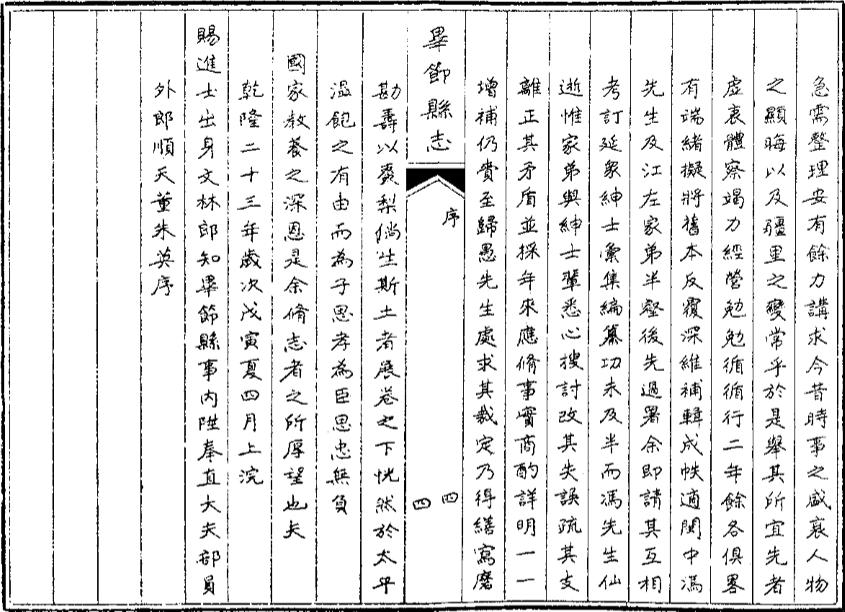 急需整理安有餘力講求今昔時事之盛衰人物
之顯晦以及疆里之變常乎於是舉其所宜先者
虛衷體察竭力經營勉勉循循行二年餘各俱畧
有端緒擬將舊本反覆深維補輯成帙適閩中馮
先生及江左家弟半壑後先過署余即請其互相
考訂延眾紳士彙集編纂功未及半而馮先生仙
逝惟家弟與紳士輩悉心搜討改其失誤疏其支
離正其矛盾並採年來應脩事實商酌詳明一一
增補仍賫至歸愚先生處求其裁定乃得繕寫磨
畢節縣志
序
四
四
勘壽以棗梨倘生斯土者展卷之下恍然於太平
溫飽之有由而為子思孝為臣思忠無負
國家教養之深恩是余脩志者之所厚望也夫
乾隆二十三年歲次戊寅夏四月上浣
賜進士出身文林郎知畢節縣事內陞奉直大夫部員
外郎順天董朱英序